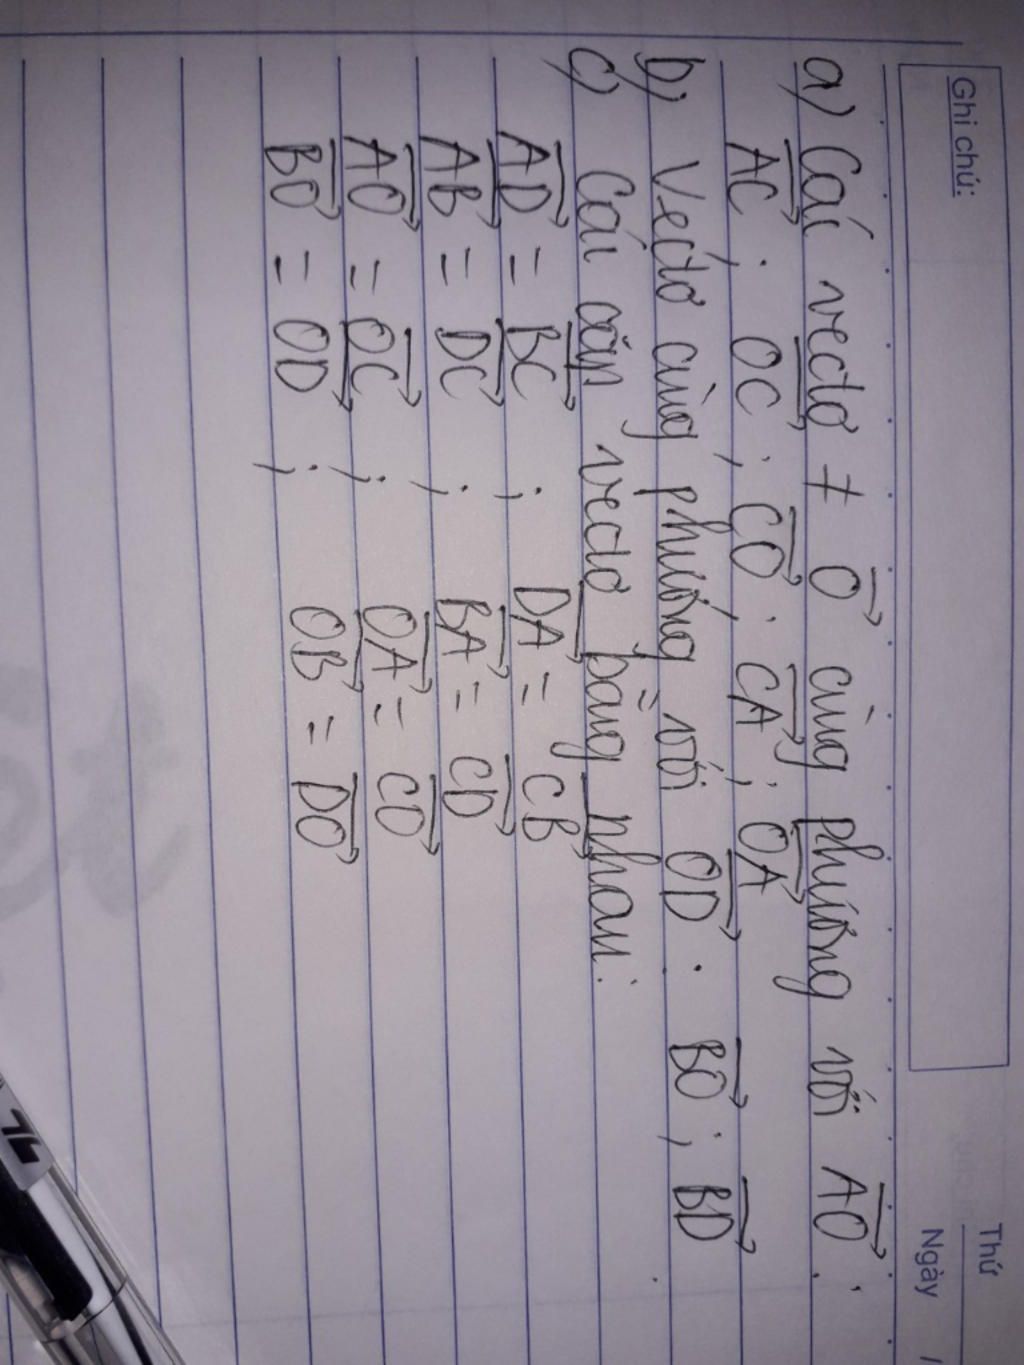 Ghi chú:
Thứ
Ngày /
a) Các vectơ ≠ \vec{0} cùng phương với \vec{AO}:
\vec{AC}; \vec{OC}; \vec{CO}; \vec{CA}; \vec{OA}
b) Vectơ cùng phương với \vec{OD}. \vec{BO}; \vec{BD}.
c) Các cặp vectơ bằng nhau:
\vec{AD} = \vec{BC} ; \vec{DA} = \vec{CB}
\vec{AB} = \vec{DC} ; \vec{BA} = \vec{CD}
\vec{AO} = \vec{OC} ; \vec{OA} = \vec{CO}
\vec{BO} = \vec{OD} ; \vec{OB} = \vec{DO}